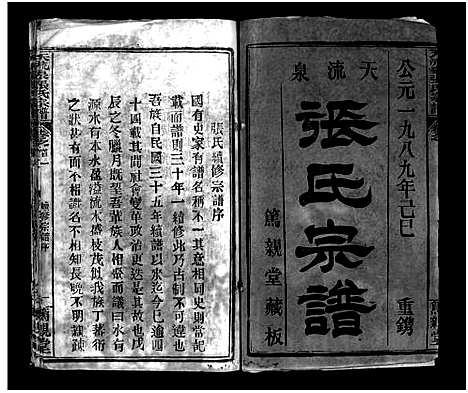 公元一九八九年己巳
重鐫
天流泉
張氏宗譜
篤親堂藏板
張氏續修宗譜序
國有史家有譜名稱不一其義相同史則當記
載而譜則三十年一續修此乃古制不可更也
吾族自民國三十五年續譜以來迄今已逾四
十四載其間社會變革政治更迭是其大者戊
辰之冬臘月既望吾輩族人相聚而議曰水有
源水有本水盈溢流木盛枝茂似我族丁蕃衍
之狀甚有不相識名不相知長晚不明親疎